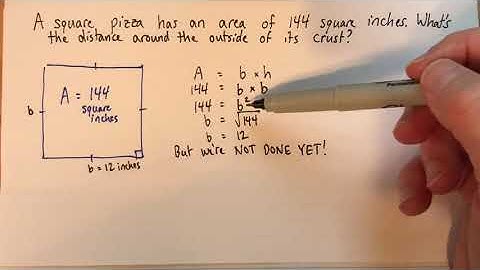 A square pizza has an area of 144 square inches. What's
the distance around the outside of its crust?
A = 144
square
inches
b
b = 12 inches
A = b × h
144 = b × b
144 = b²
b = √144
b = 12
But we're NOT DONE YET!